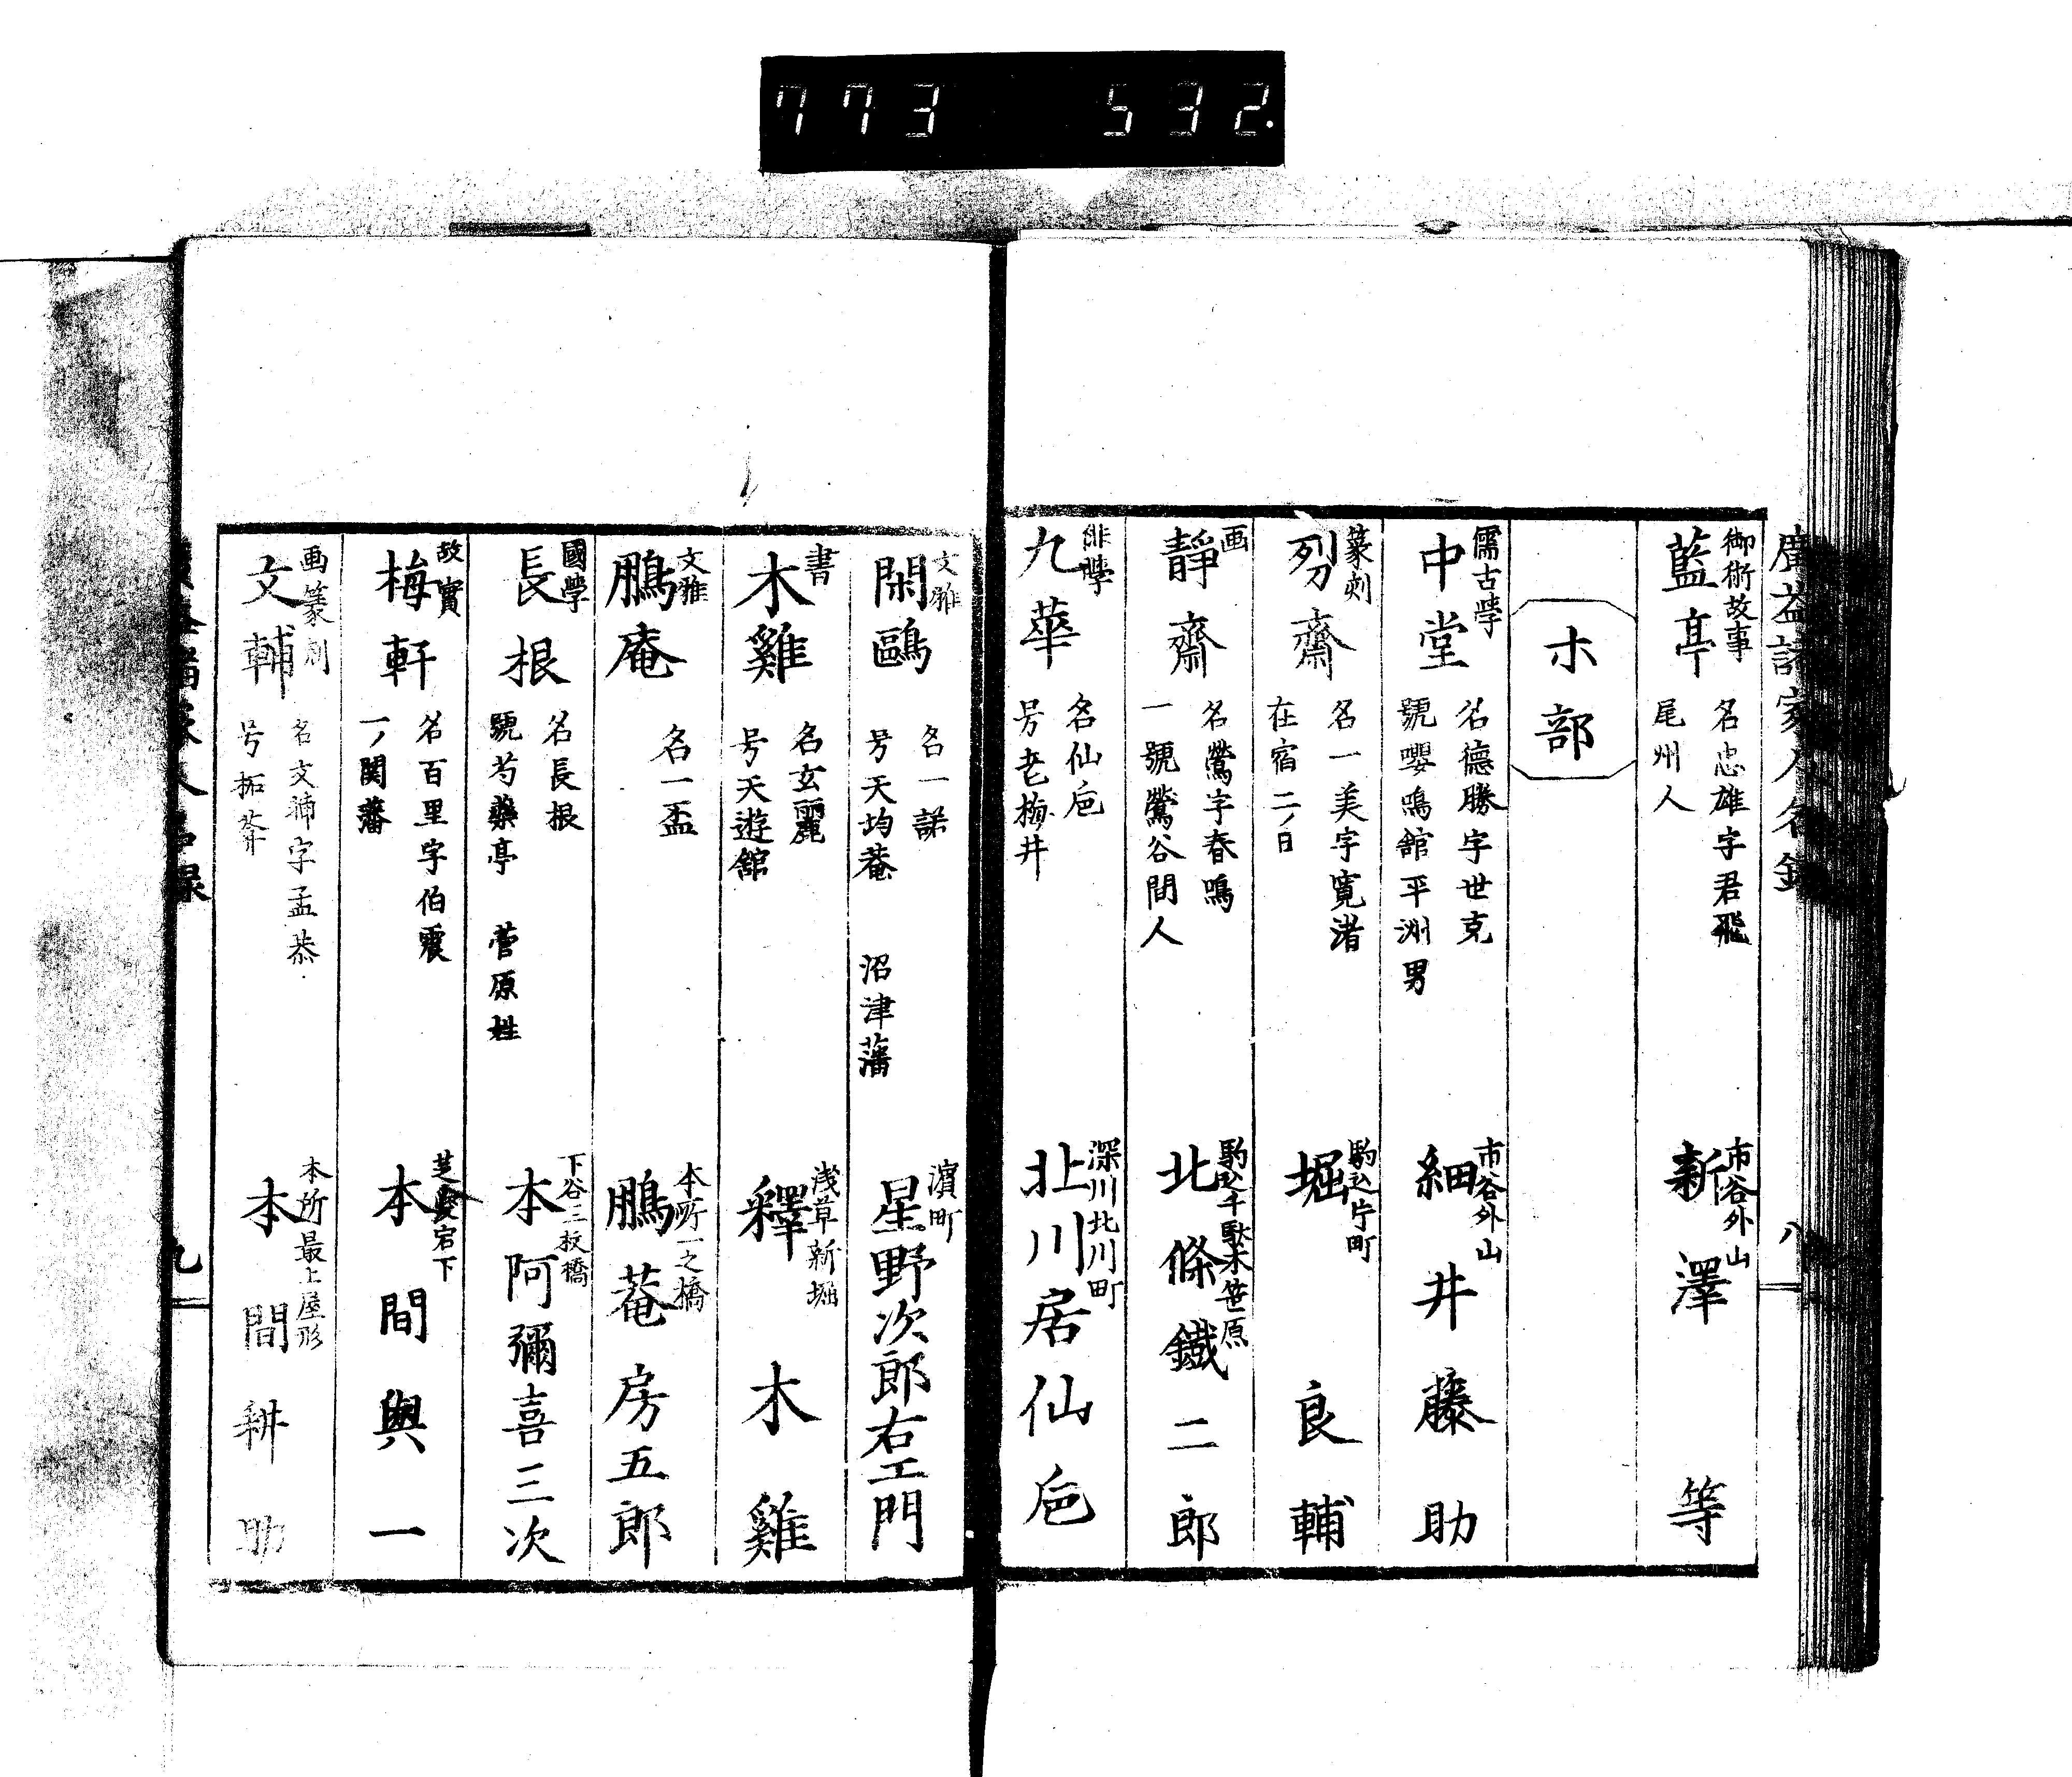 773 532.
廣益諸家人名録
八
御術故事
藍亭
名忠雄字君飛
尾州人
市谷外山
新澤等
ホ部
儒古學
中堂
名德勝字世克
號嚶鳴館平洲男
市谷外山
細井藤助
篆刻
烈齋
名一美字寛渚
在宿二ノ日
駒込片町
堀良輔
画
靜齋
名鶯字春鳴
一號鶯谷間人
駒込千駄木笹原
北條鐵二郎
俳諧
九華
名仙巵
号老梅井
深川北川町
北川居仙巵
文雅
閑鷗
名一諾
号天均菴 沼津藩
濱町
星野次郎右工門
書
木雞
名玄麗
号天遊舘
浅草新堀
釋木雞
文雅
鵬庵
名一盃
本所一之橋
鵬菴房五郎
國學
長根
名長根
號芍藥亭 菅原姓
下谷三枚橋
本阿彌喜三次
故實
梅軒
名百里字伯震
一ノ関藩
芝愛宕下
本間與一
画篆刻
文輔
名文輔字孟恭
号拓斎
本所最上屋形
本間耕助
九